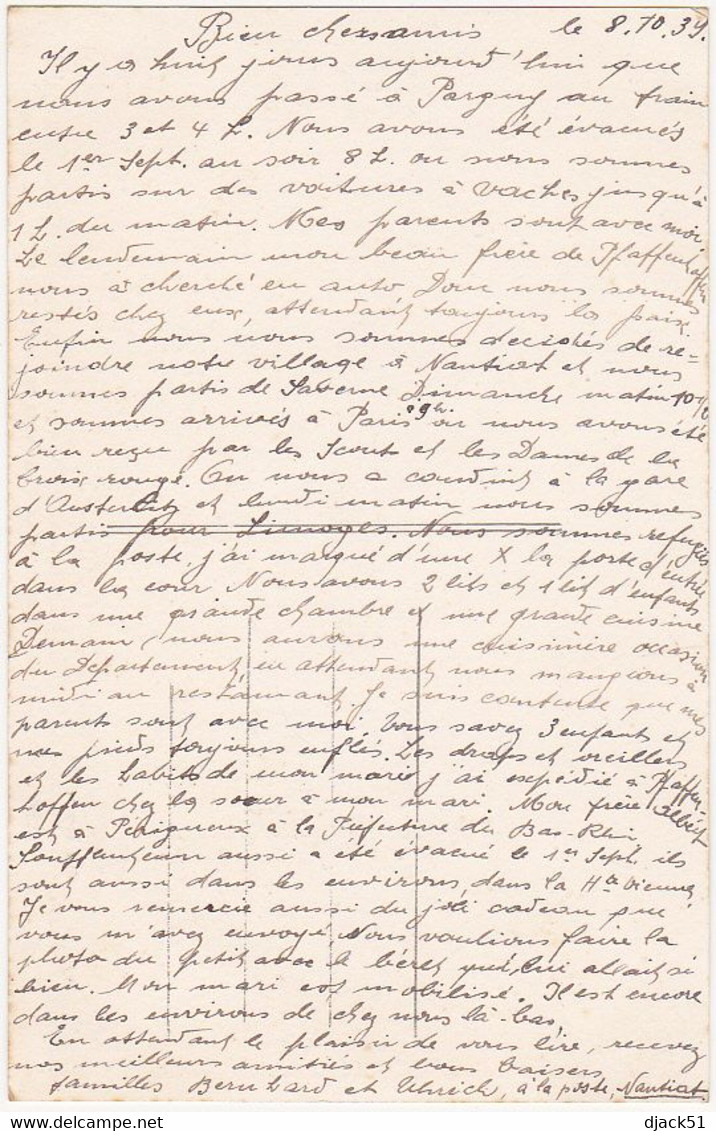 Bien chers amis le 8.10.39.
Il y a huit jours aujourd'hui que
nous avons passé à Pargny au train
entre 3 et 4 h. Nous avons été évacués
le 1er Sept. au soir 8 h. ou nous sommes
partis sur des voitures à vaches jusqu'à
1 h. du matin. Mes parents sont avec moi.
Le lendemain mon beau frère de Pfaffenhoffen
nous a cherché en auto Donc nous sommes
restés chez eux, attendant toujours la paix.
Enfin nous nous sommes decidés de re-
joindre notre village à Nantiat et nous
sommes partis de Saverne Dimanche matin 10 h
et sommes arrivés à Paris 9 h. ou nous avons été
bien reçu par les Scout et les Dames de la
Croix rouge. On nous a conduit à la gare
d'Austerlitz et lundi matin nous sommes
partis pour Limoges. Nous sommes refugiés
à la poste, j'ai marqué d'une X la porte d'entrée
dans la cour Nous avons 2 lits et 1 lit d'enfants
dans une grande chambre et une grande cuisine
Demain nous aurons une cuisinière occasion
du Departement, en attendant nous mangions à
midi au restaurant. Je suis contente que mes
parents sont avec moi. Vous savez 3 enfants et
mes pieds toujours enflés. Les draps et oreillers
et les habits de mon mari j'ai expédié à Pfaffen-
hoffen chez la soeur à mon mari. Mon frère Albert
est à Périgueux à la Préfecture du Bas-Rhin
Soufflenheim aussi a été évacué le 1er Sept. ils
sont aussi dans les environs, dans la Hte Vienne
Je vous remercie aussi du joli cadeau que
vous m'avez envoyé. Nous voulions faire la
photo du Petit avec le béret qui lui allait si
bien. Mon mari est mobilisé. Il est encore
dans les environs de chez nous là-bas.
En attendant le plaisir de vous lire, recevez
nos meilleurs amitiés et bons baisers
familles Bernhard et Uhrich, à la poste, Nantiat.
djack51